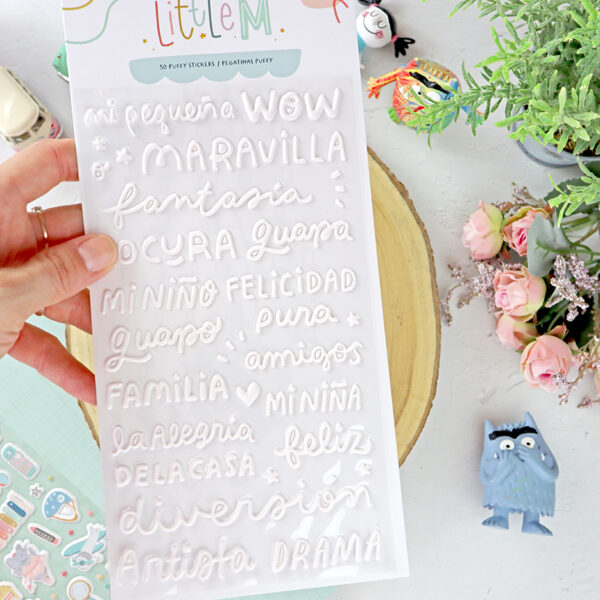 Little M
50 PUFFY STICKERS / PEGATINAS PUFFY
mi pequeña WOW
MARAVILLA
fantasía
LOCURA guapa
MI NIÑO FELICIDAD
guapo pura
amigos
FAMILIA MI NIÑA
la Alegría feliz
DE LA CASA
diversión
Artista DRAMA